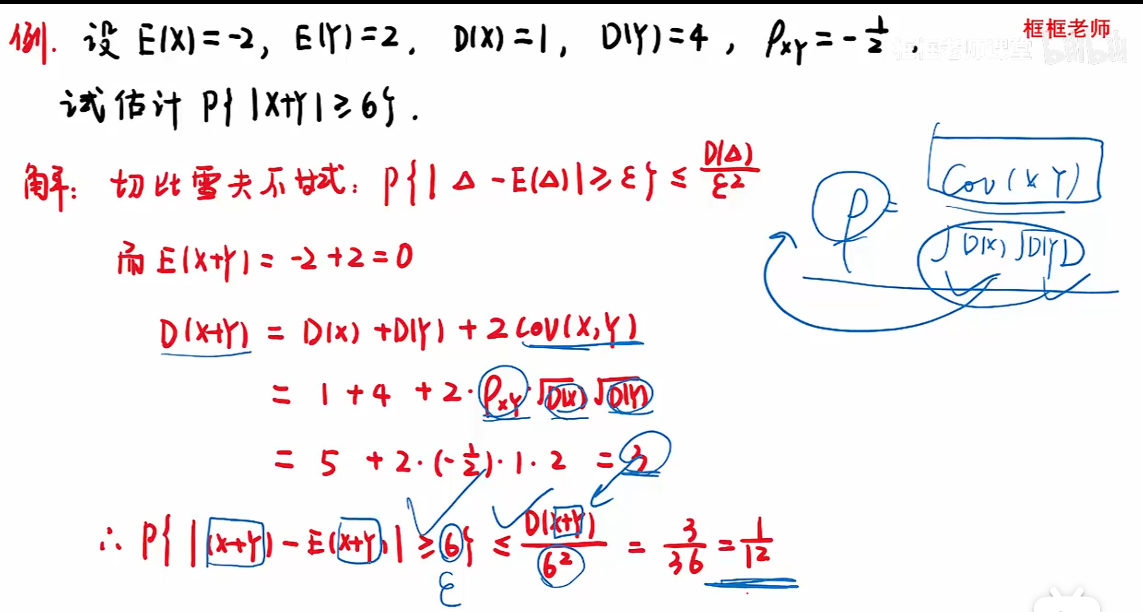 例. 设 E(X)=-2, E(Y)=2, D(X)=1, D(Y)=4, ρ_XY=-1/2,
框框老师
框框老师课堂 bilibili
试估计 P{|X+Y|≥6}.
解: 切比雪夫不甘式: P{|Δ-E(Δ)|≥ε}≤D(Δ)/ε²
ρ = Cov(X Y)/√D(X) √D(Y)
而 E(X+Y)=-2+2=0
D(X+Y) = D(X)+D(Y)+2COV(X,Y)
= 1+4+2·ρ_XY·√D(X) √D(Y)
= 5+2·(-1/2)·1·2 = 3
∴ P{|(X+Y)-E(X+Y)|≥6}≤D(X+Y)/6² = 3/36 = 1/12
ε